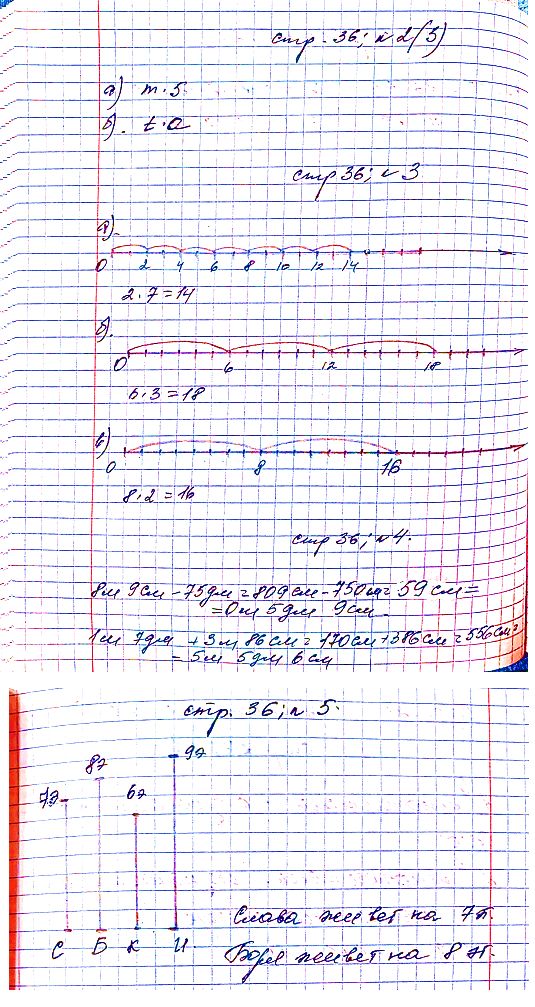 стр. 36; № 2(5)
а) m·5
б). t·a
стр 36; № 3
а).
0 2 4 6 8 10 12 14
2·7=14
б).
0 6 12 18
6·3=18
в)
0 8 16
8·2=16
стр 36; № 4.
8м 9см - 75дм = 809см - 750см = 59см =
= 0м 5дм 9см.
1м 7дм + 3м 86см = 170см + 386см = 556см =
= 5м 5дм 6см
стр. 36; № 5.
7э 8э 6э 9э
С Б К И
Слава живет на 7э.
Боря живет на 8 эт.